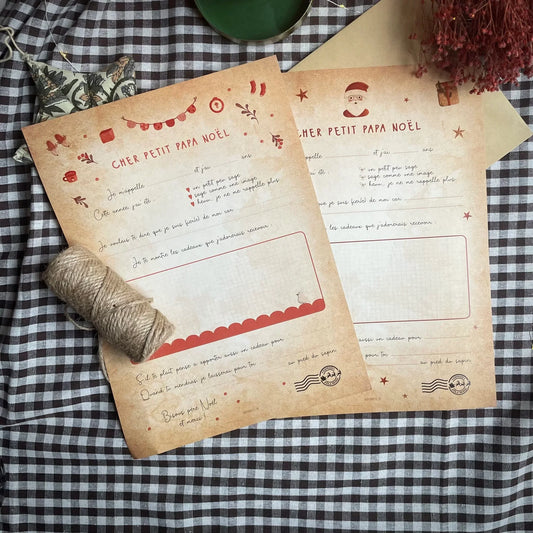 CHER PETIT PAPA NOËL
Je m'appelle et j'ai ans
Cette année j'ai été un petit peu sage
sage comme une image
hum.. je ne me rappelle plus
Je voulais te dire que je suis fier(e) de moi car
Je te montre les cadeaux que j'adorerais recevoir
S'il te plait pense a apporter aussi un cadeau pour
Quand tu viendras je laisserai pour toi au pied du sapin
Bisous père Noël
et merci !
CHER PETIT PAPA NOËL
appelle et j'ai ans
un petit peu sage
sage comme une image
hum.. je ne me rappelle plus
que je suis fier(e) de moi car
les cadeaux que j'adorerais recevoir
aussi un cadeau pour
pour toi au pied du sapin